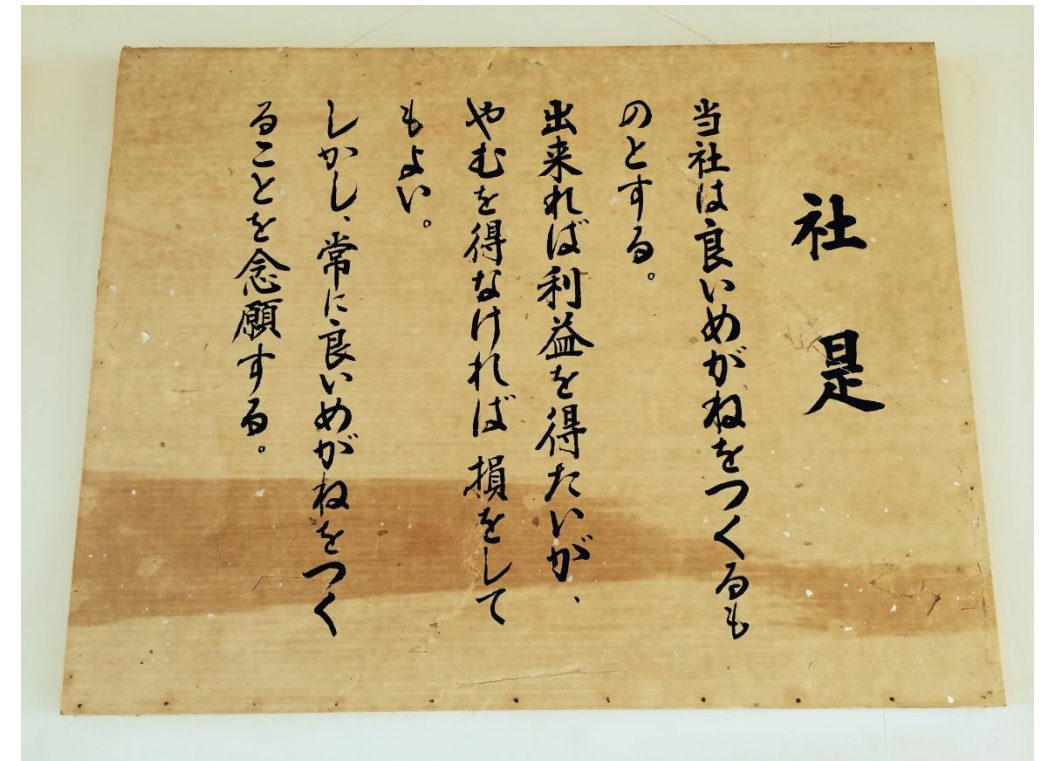 社是
当社は良いめがねをつくるも
のとする。
出来れば利益を得たいが、
やむを得なければ損をして
もよい。
しかし、常に良いめがねをつく
ることを念願する。